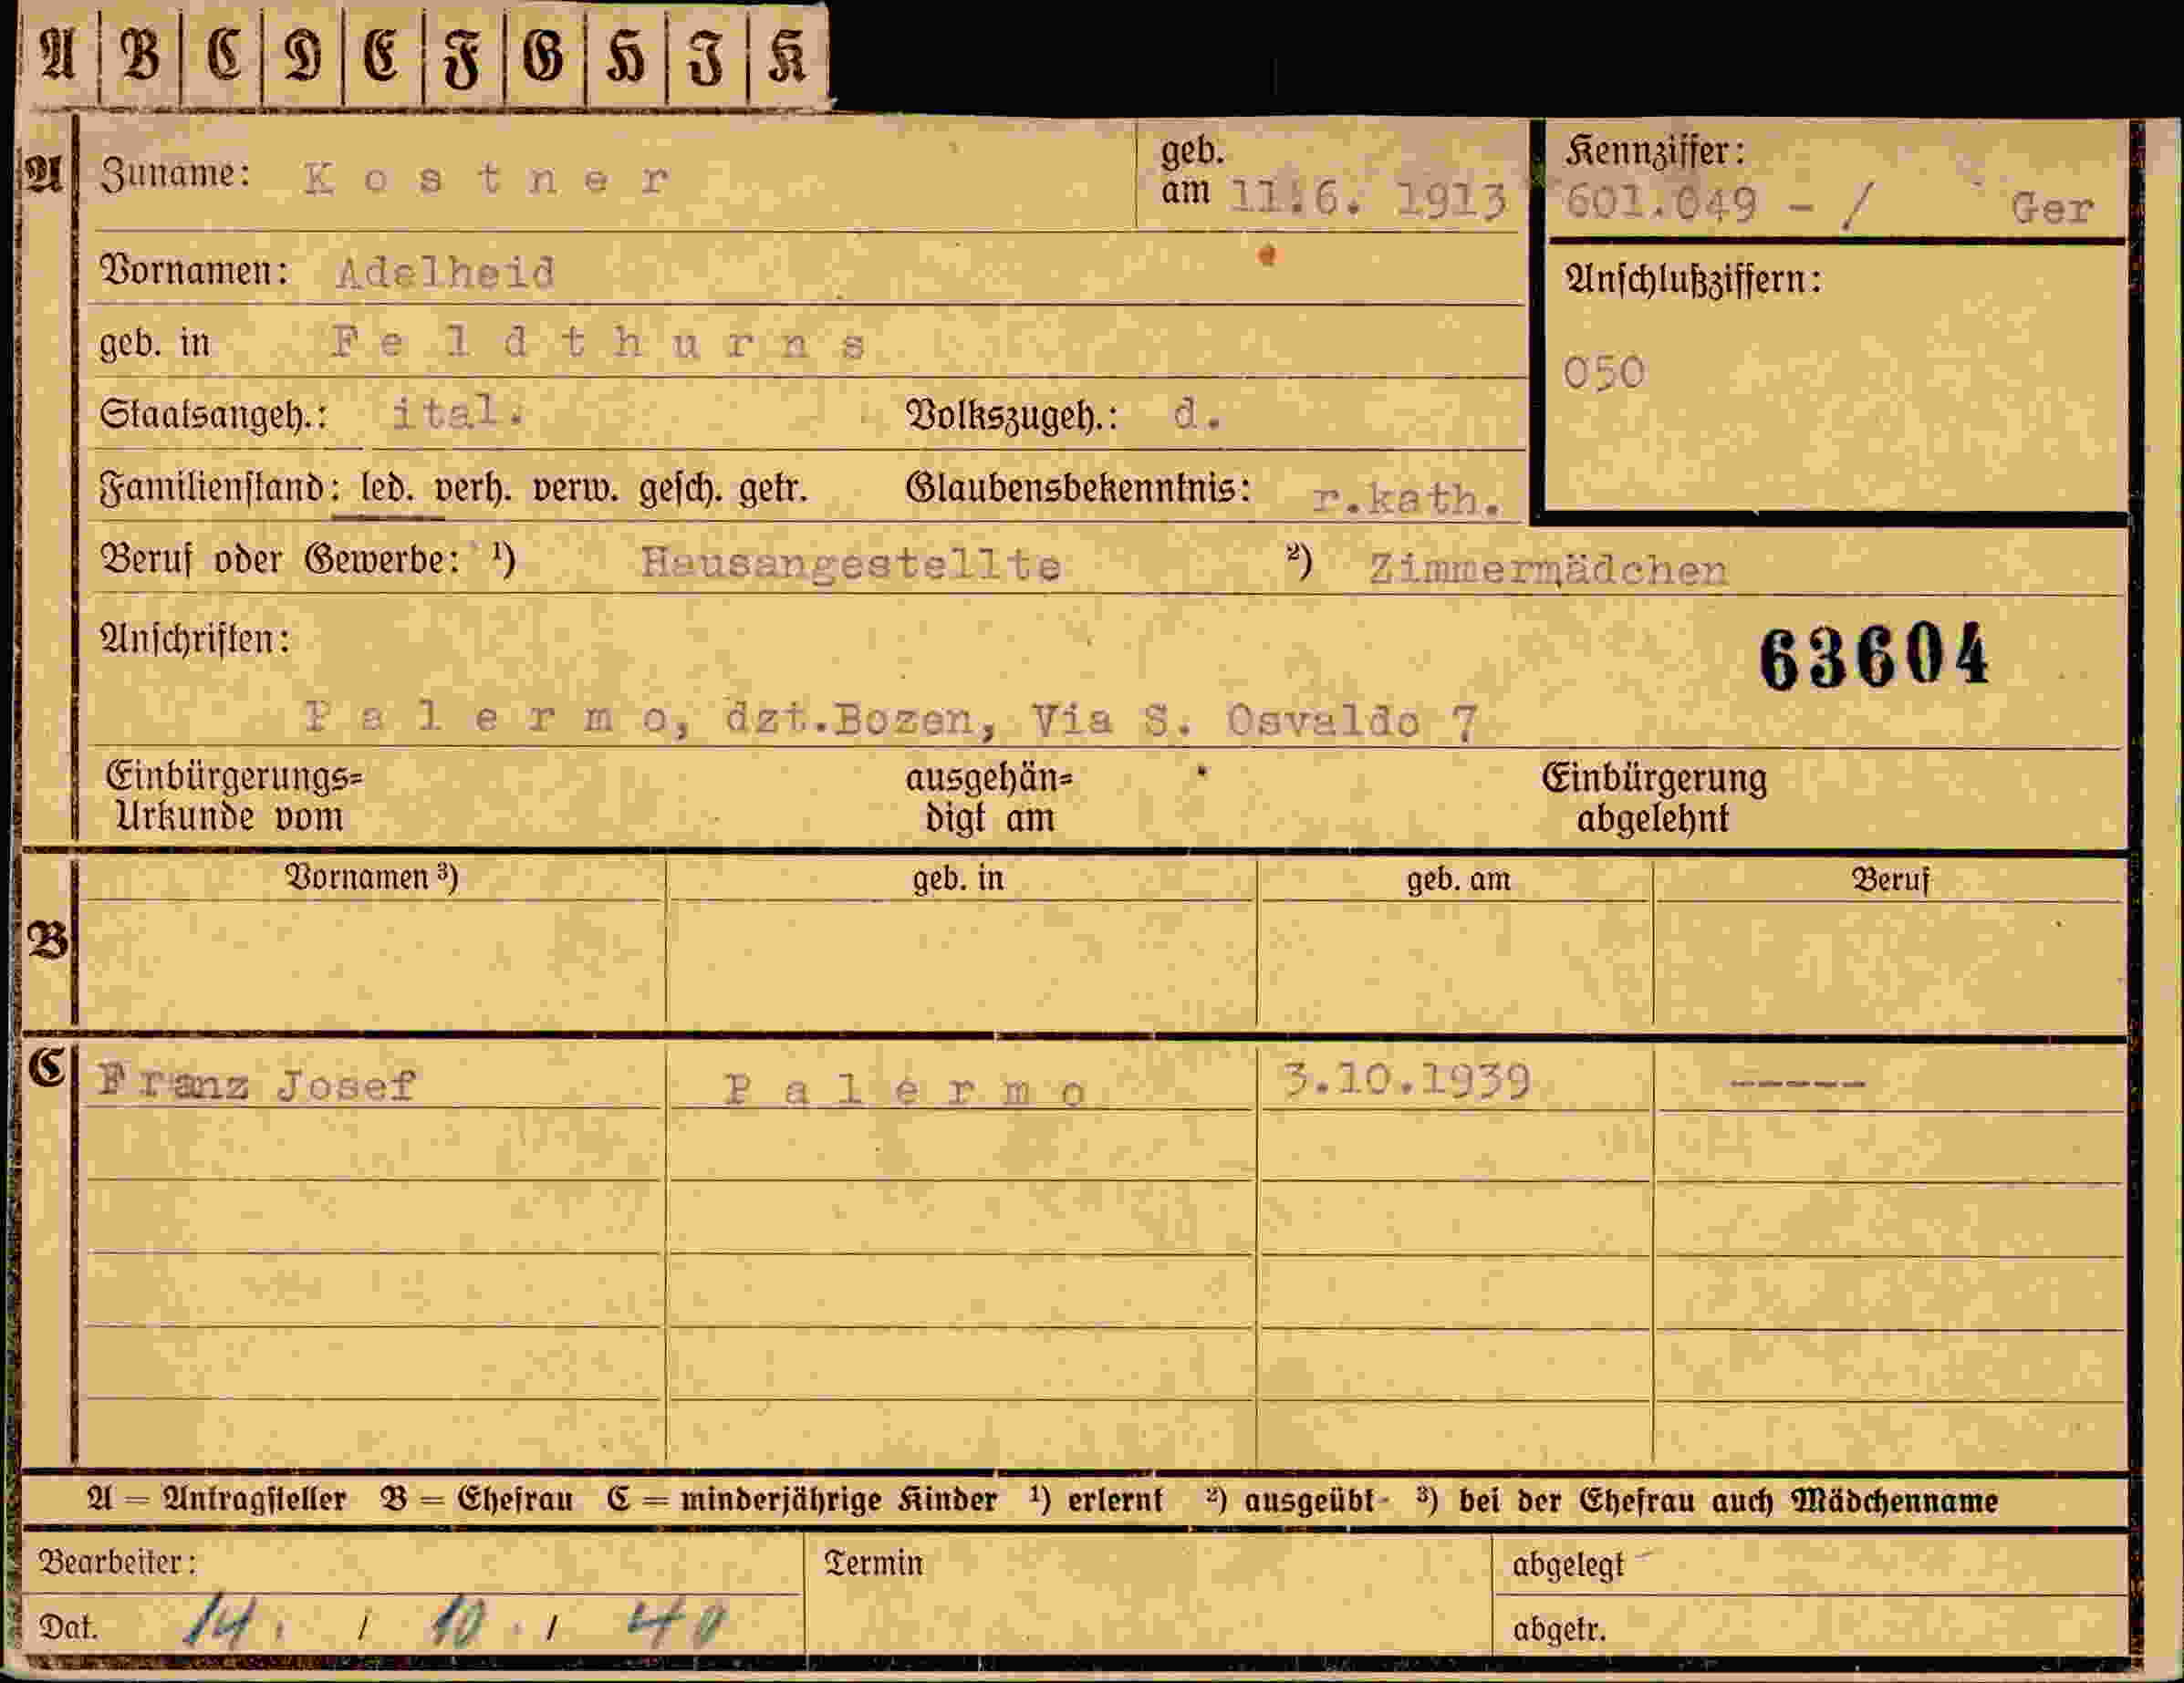 A B C D E F G H I K
A Zuname: Kostner geb. am 11.6. 1913 Kennziffer: 601.049 - / Ger
Vornamen: Adelheid
Anschlußziffern:
geb. in Feldthurns
050
Staatsangeh.: ital. Volkszugeh.: d.
Familienstand: led. verh. verw. gesch. getr. Glaubensbekenntnis: r.kath.
Beruf oder Gewerbe: ¹) Hausangestellte ²) Zimmermädchen
Anschriften:
63604
Palermo, dzt.Bozen, Via S. Osvaldo 7
Einbürgerungs= ausgehän= Einbürgerung
Urkunde vom digt am abgelehnt
B Vornamen ³) geb. in geb. am Beruf
C Franz Josef Palermo 3.10.1939 -----
A = Antragsteller B = Ehefrau C = minderjährige Kinder ¹) erlernt ²) ausgeübt ³) bei der Ehefrau auch Mädchenname
Bearbeiter: Termin abgelegt
Dat. 14. / 10. / 40 abgetr.